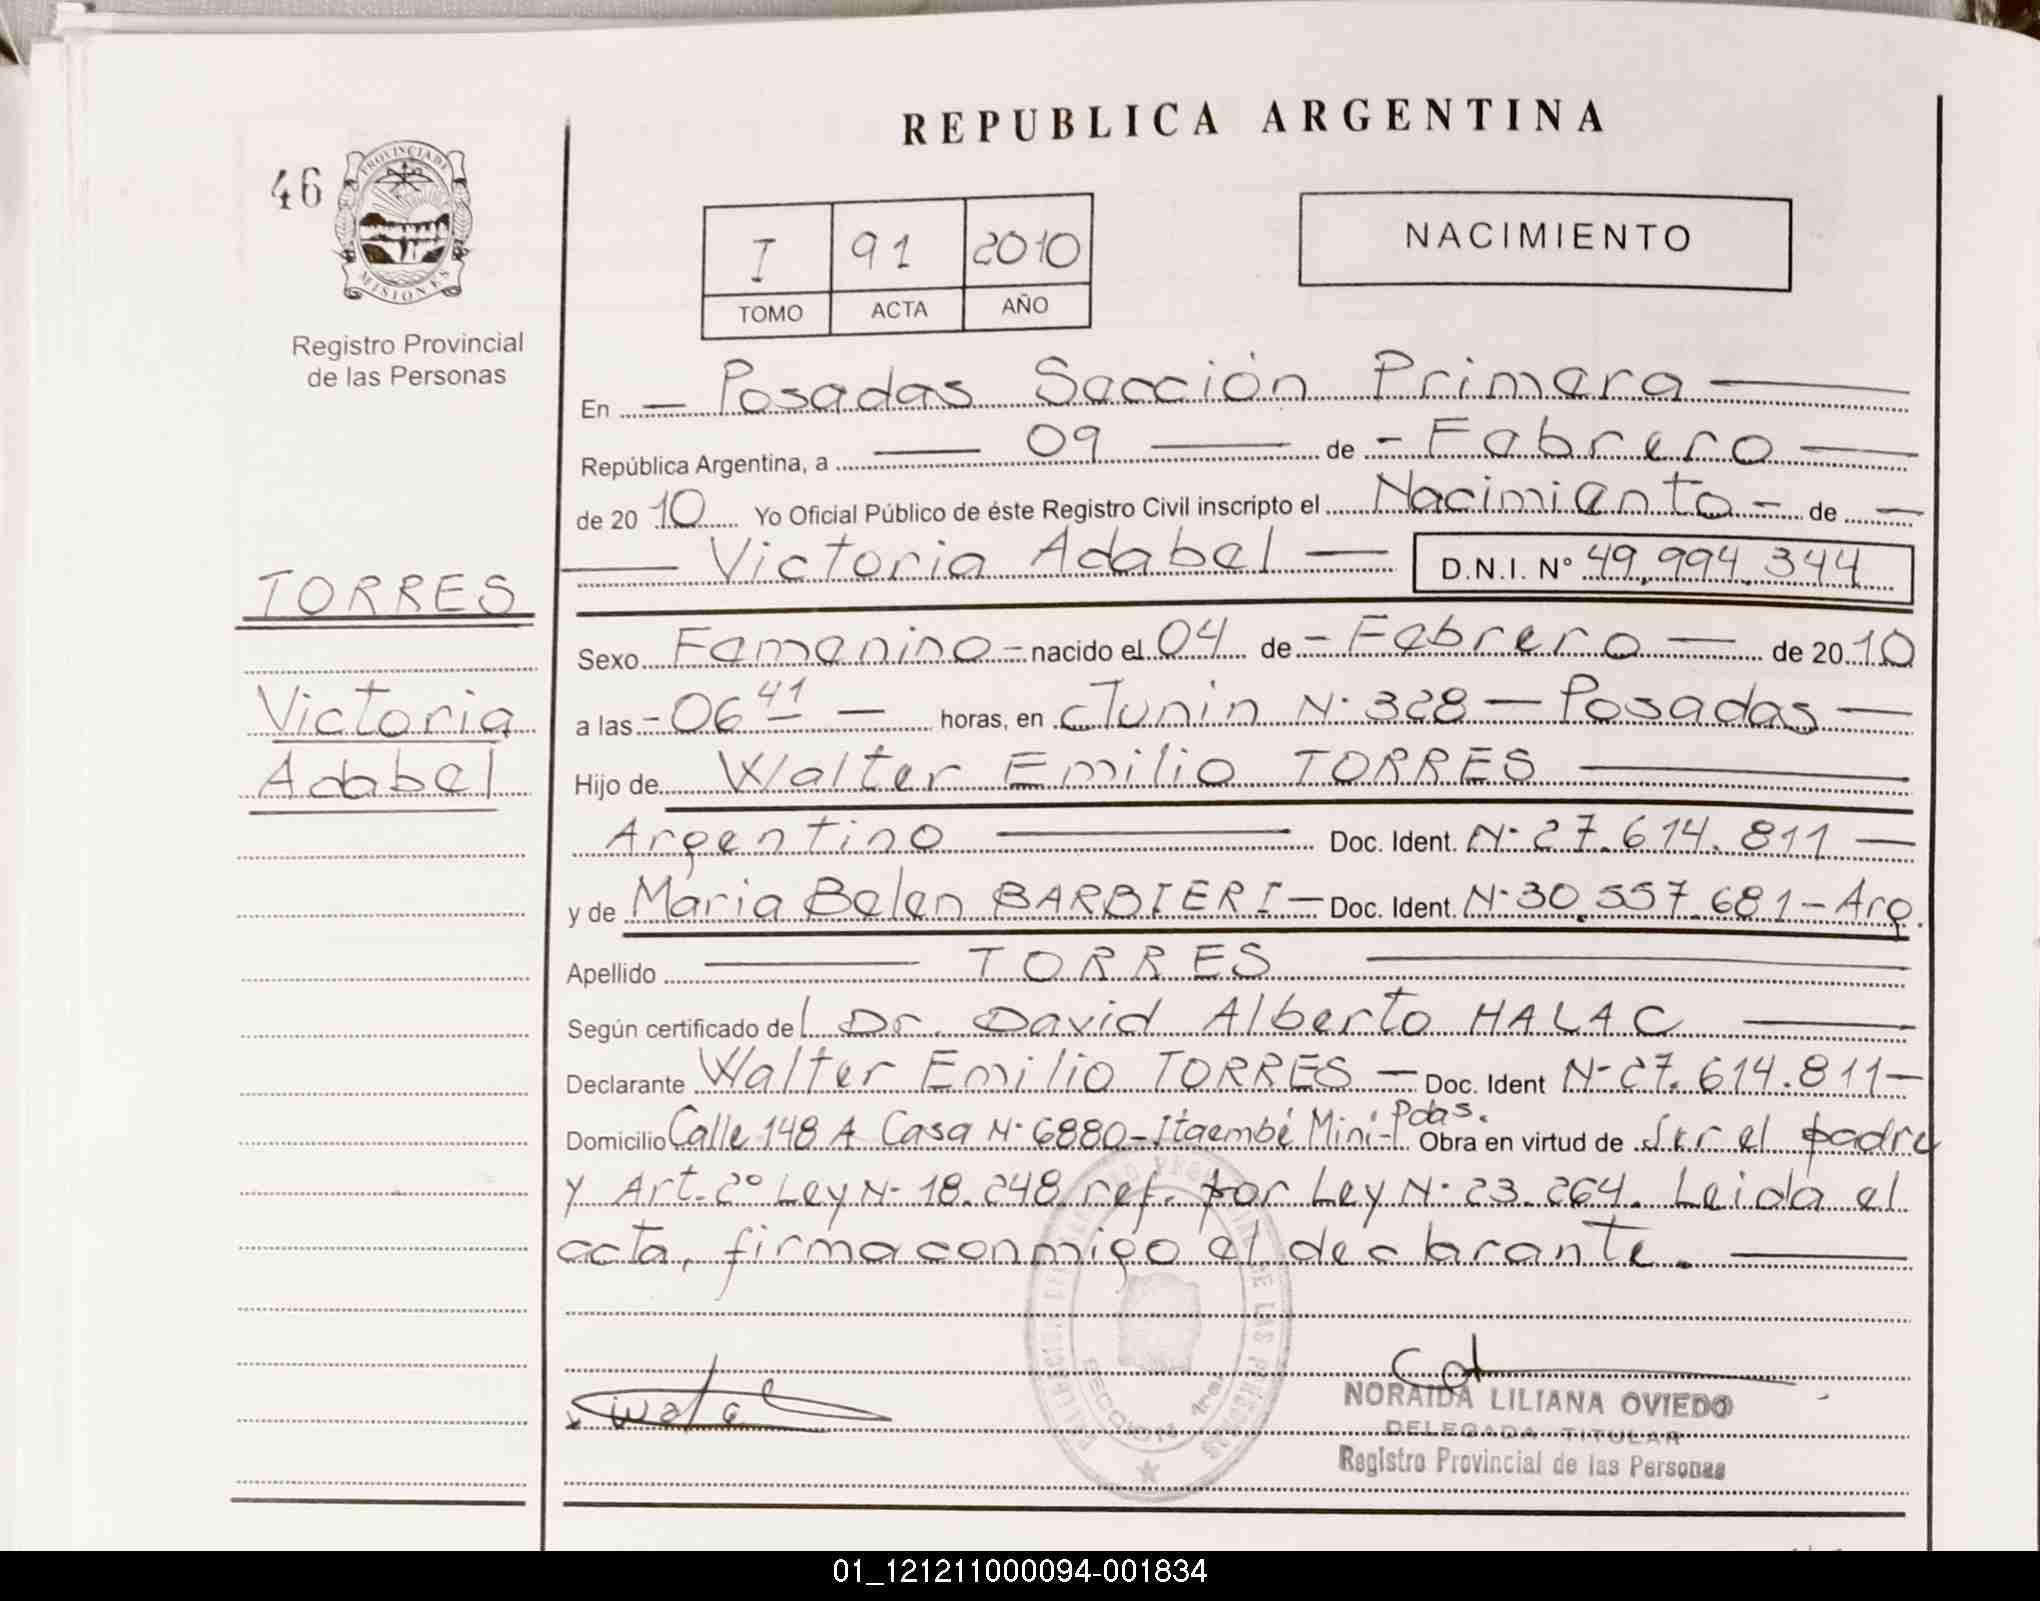 REPUBLICA ARGENTINA
46
PROVINCIA DE
MISIONES
Registro Provincial
de las Personas
I 91 2010
TOMO ACTA AÑO
NACIMIENTO
En Posadas Sección Primera
República Argentina, a 09 de Febrero
de 2010 Yo Oficial Público de éste Registro Civil inscripto el Nacimiento de
Victoria Adabel D.N.I. Nº 49.994.344
TORRES
Victoria
Adabel
Sexo Femenino nacido el 04 de Febrero de 2010
a las 06 41 horas, en Junin Nº 328 - Posadas
Hijo de Walter Emilio TORRES
Argentino Doc. Ident. Nº 27.614.811
y de Maria Belen BARBIERI Doc. Ident. Nº 30.557.681 - Arg.
Apellido TORRES
Según certificado del Dr. David Alberto HALAC
Declarante Walter Emilio TORRES Doc. Ident Nº 27.614.811
Domicilio Calle 148 A Casa Nº 6880 - Itaembé Miní - Pdas. Obra en virtud de Ser el padre
y Art. 2º Ley Nº 18.248 ref. por Ley Nº 23.264. Leida el
acta, firma conmigo el declarante.
DE LAS PERSONAS
SECCION 1ra.
NORAIDA LILIANA OVIEDO
DELEGADA TITULAR
Registro Provincial de las Personas
01_121211000094-001834